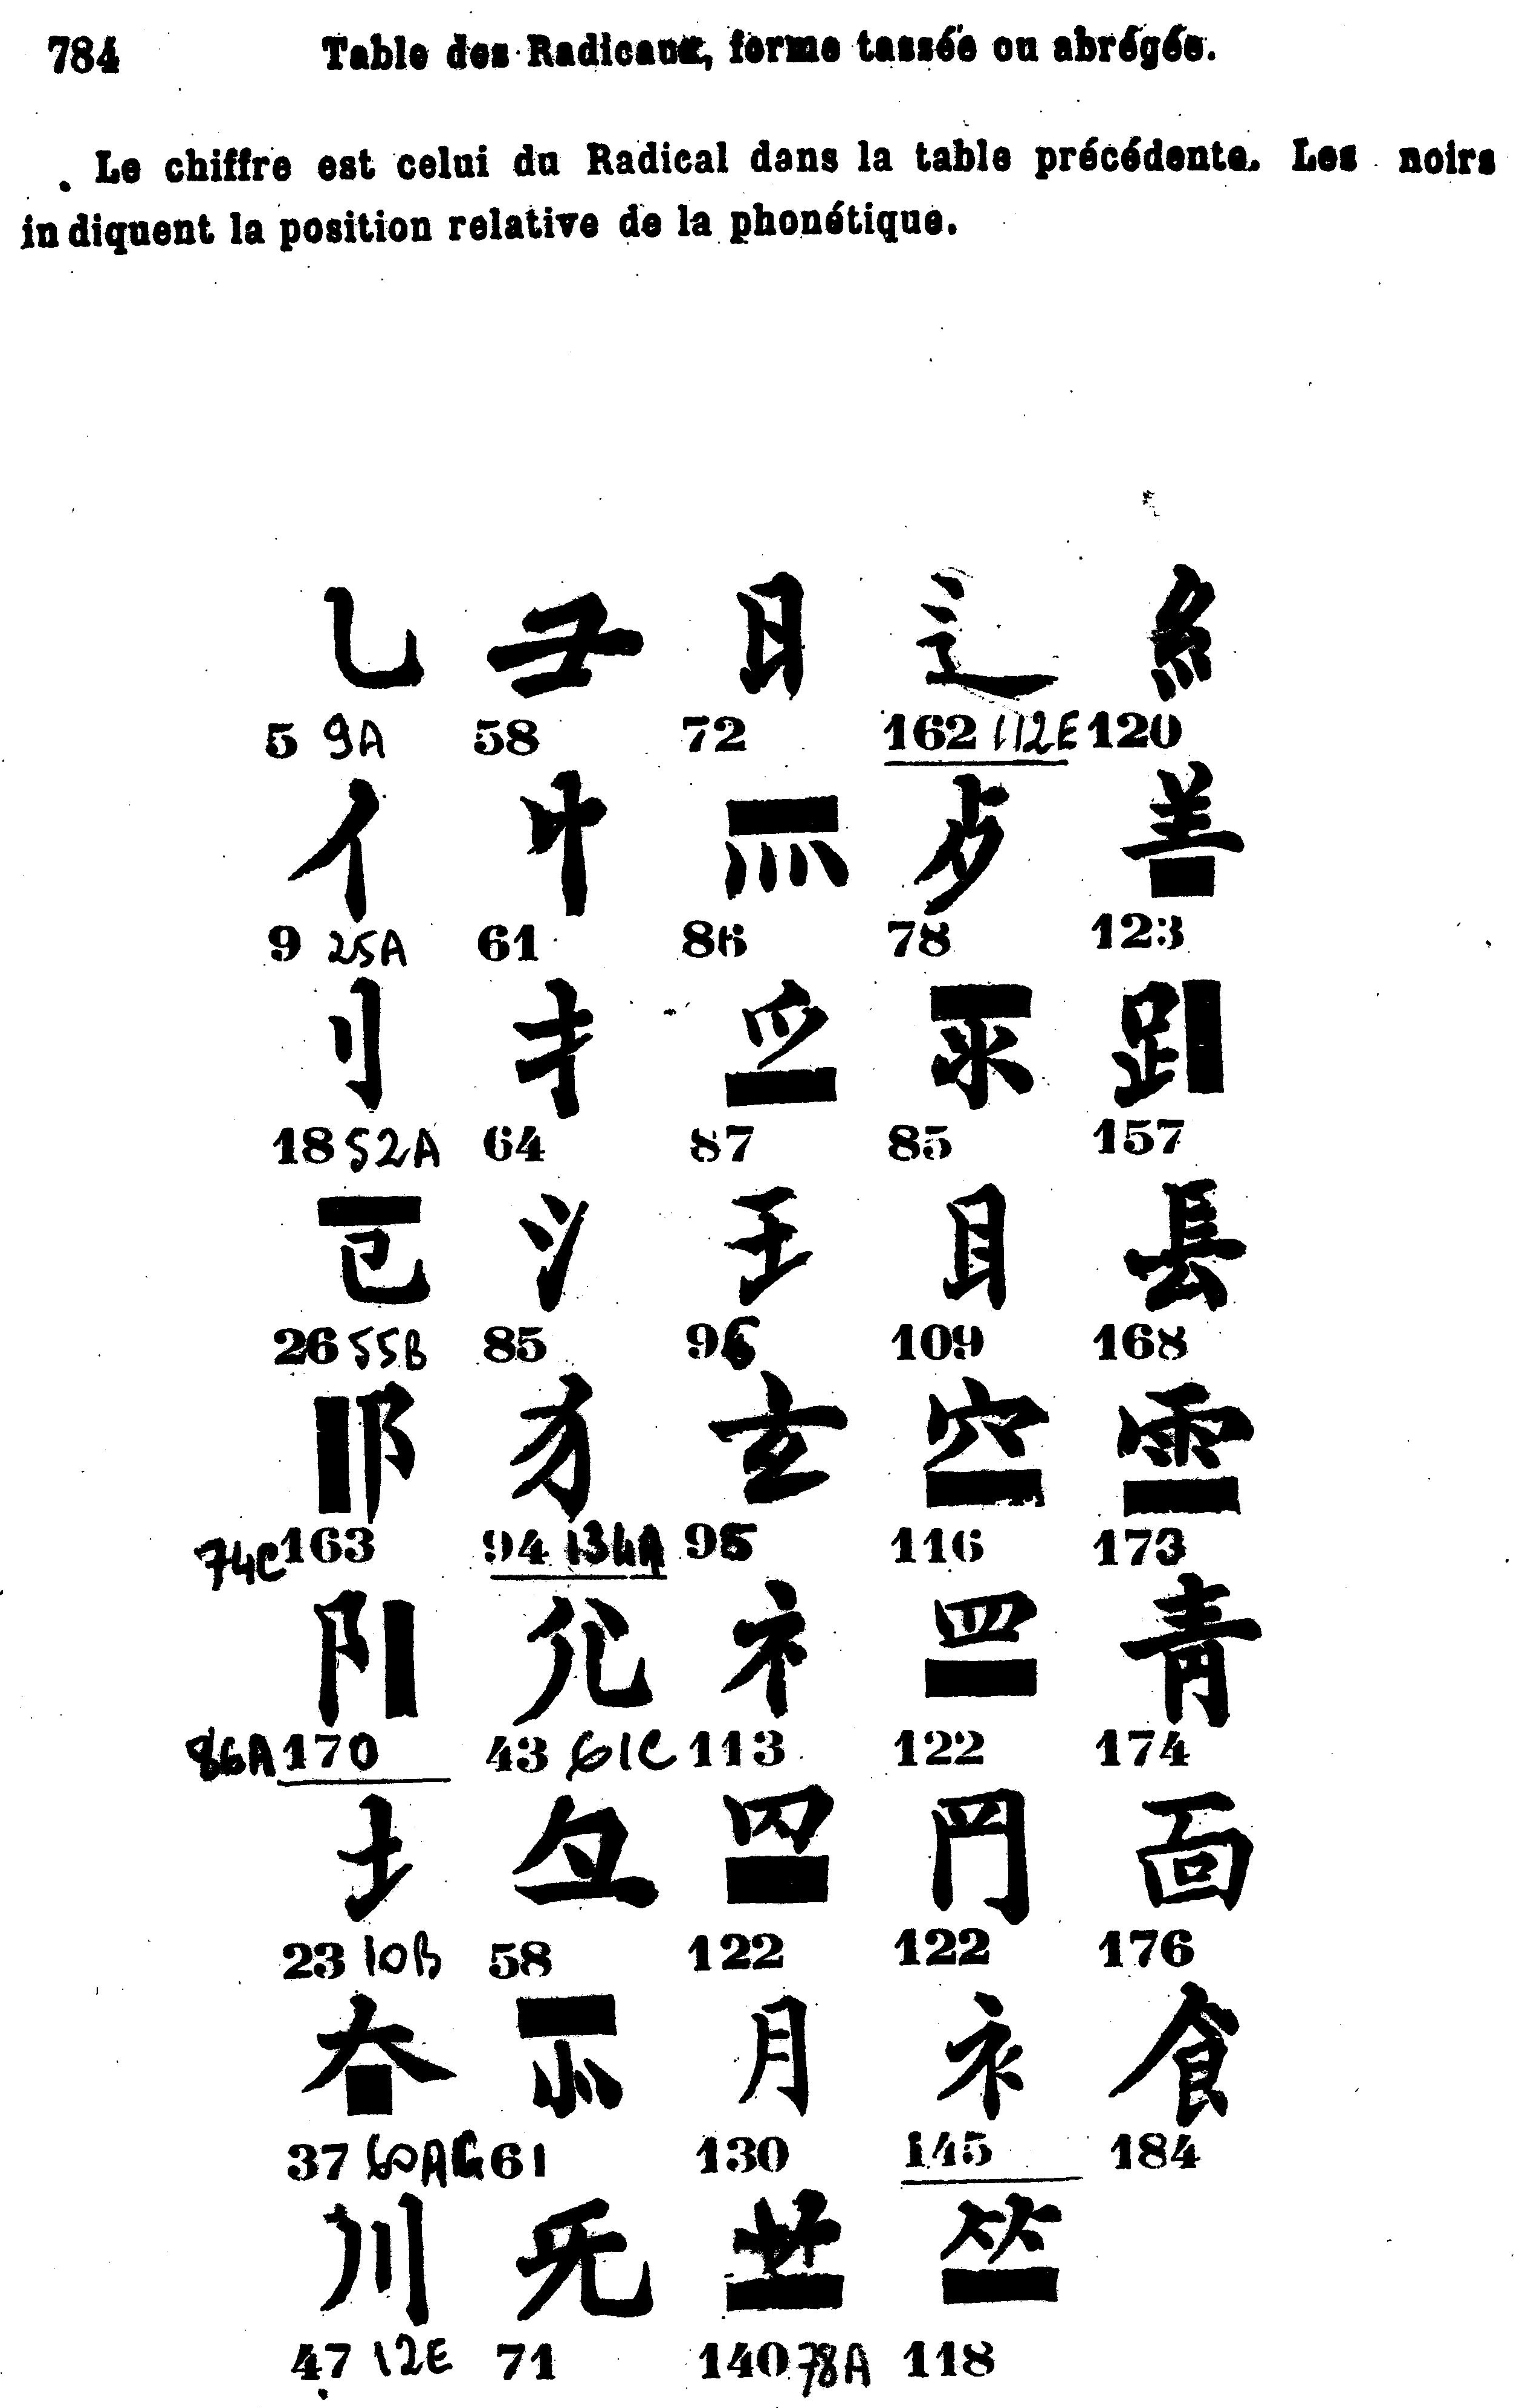 784 Table des Radicaux, forme tassée ou abrégée.
Le chiffre est celui du Radical dans la table précédente. Les noirs
indiquent la position relative de la phonétique.
乚 彐 日 辶 糹
5 9A 58 72 162 112E 120
亻 忄 灬 歺 𦍌
9 25A 61 86 78 123
刂 扌 爫 氺 𧾷
18 52A 64 87 85 157
㔾 氵 王 目 镸
26 55B 85 96 109 168
阝 犭 玄 穴 雨
74C 163 94 134A 95 116 173
阝 尣 礻 罒 青
86A 170 43 61C 113 122 174
土 彑 罒 門 面
23 10B 58 122 122 176
大 㣺 月 衤 飠
37 60AG 61 130 145 184
川 旡 艹 竹
47 12E 71 140 78A 118